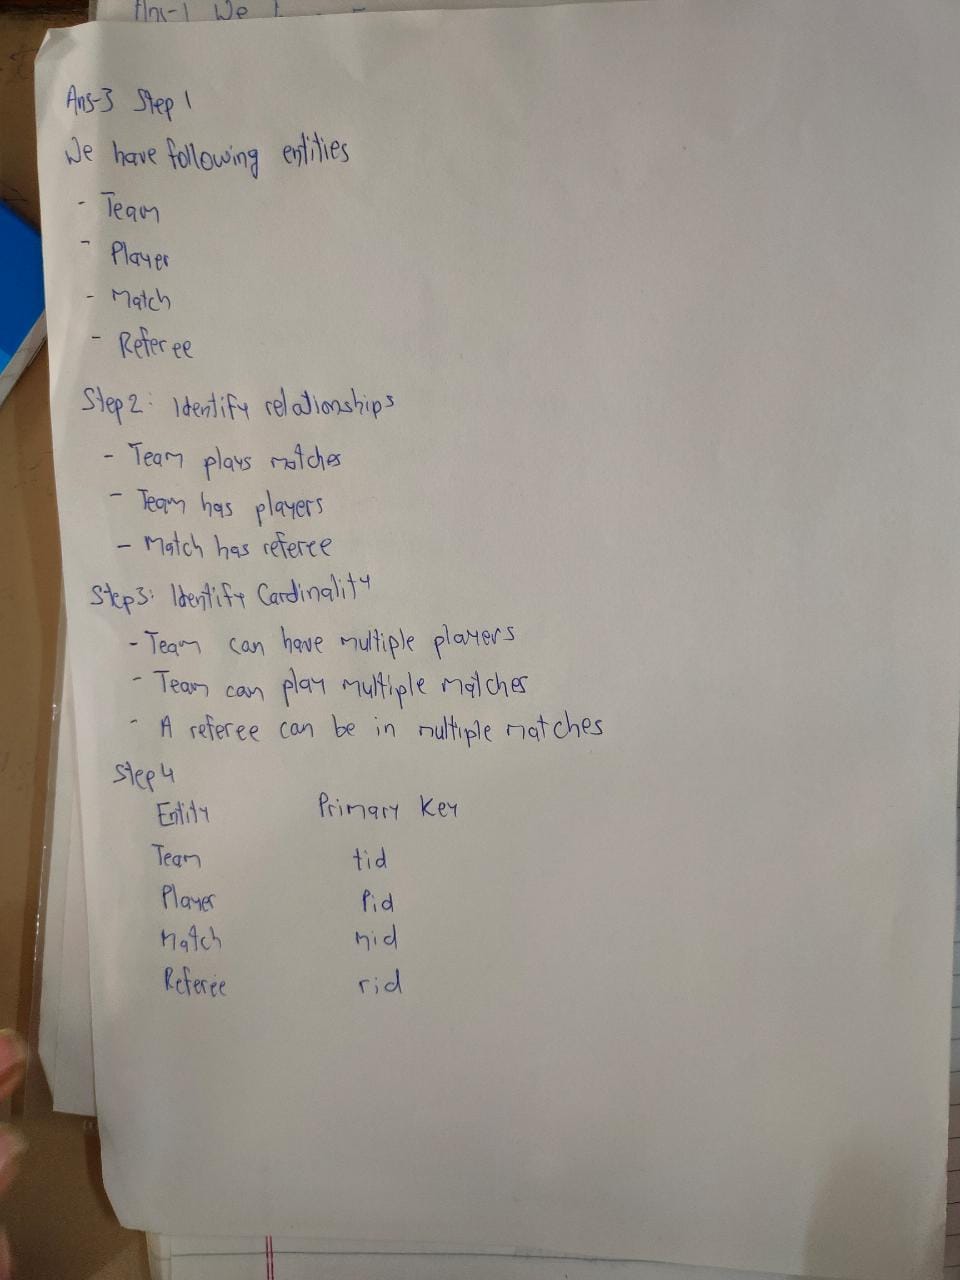 Ans-1 We
Ans-3 Step 1
We have following entities
- Team
- Player
- Match
- Referee
Step2: Identify relationships
- Team plays matches
- Team has players
- Match has referee
Step3: Identify Cardinality
- Team can have multiple players
- Team can play multiple matches
- A referee can be in multiple matches
Step4
Entity Primary Key
Team tid
Player Pid
Match mid
Referee rid